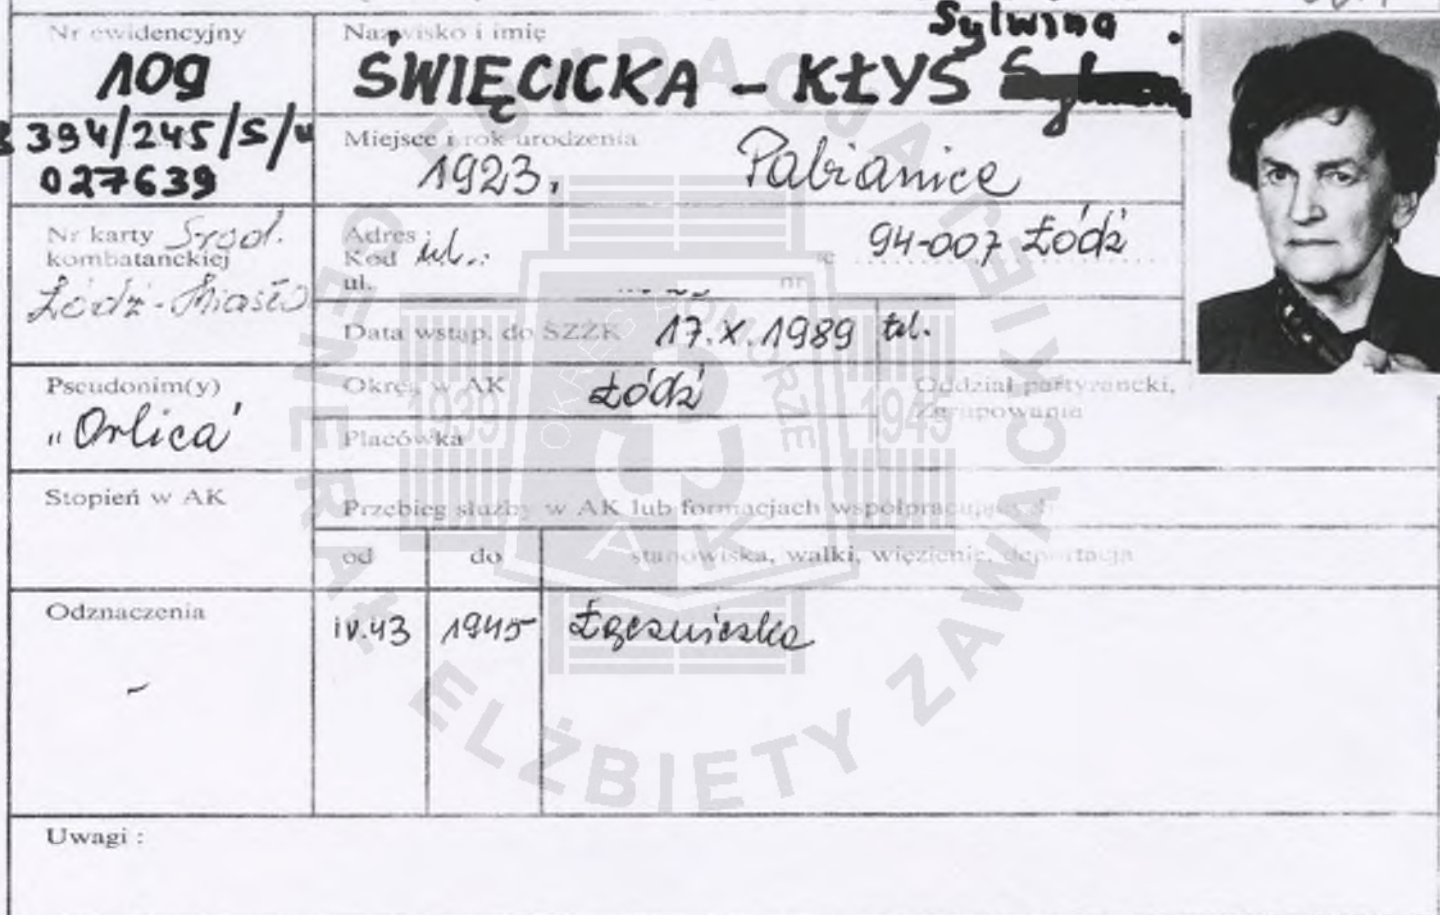 Sylwina
Nr ewidencyjny
109
394/245/S/u
027639
Nazwisko i imię
ŚWIĘCICKA - KŁYS
Miejsce i rok urodzenia
1923, Pabianice
Nr karty Środ.
kombatanckiej
Łódź-Miasto
Adres :
Kod ul.: 94-007 Łódź
ul. nr
Data wstąp. do SZŻK 17.X.1989 tel.
Pseudonim(y)
"Orlica"
Okręg w AK Łódź
Placówka
Oddział partyzancki,
Zgrupowania
Stopień w AK
Przebieg służby w AK lub formacjach współpracujących
od do stanowiska, walki, więzienie, deportacja
Odznaczenia
-
IV.43 1945 Łączniczka
Uwagi :
FUNDACJA GENERAŁ ELŻBIETY ZAWACKIEJ
1939 1945
OKRĘG POMORZE
AK